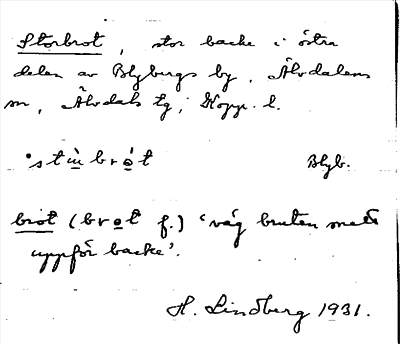 Storbrot, stor backe i östra
delen av Blybergs by, Älvdalens
sn, Älvdals tg, Kopp. l.
stu̠brò̠t Blyb.
brot (bro̠t f.) 'väg bruten med
uppför backe'.
H. Lindberg 1931.